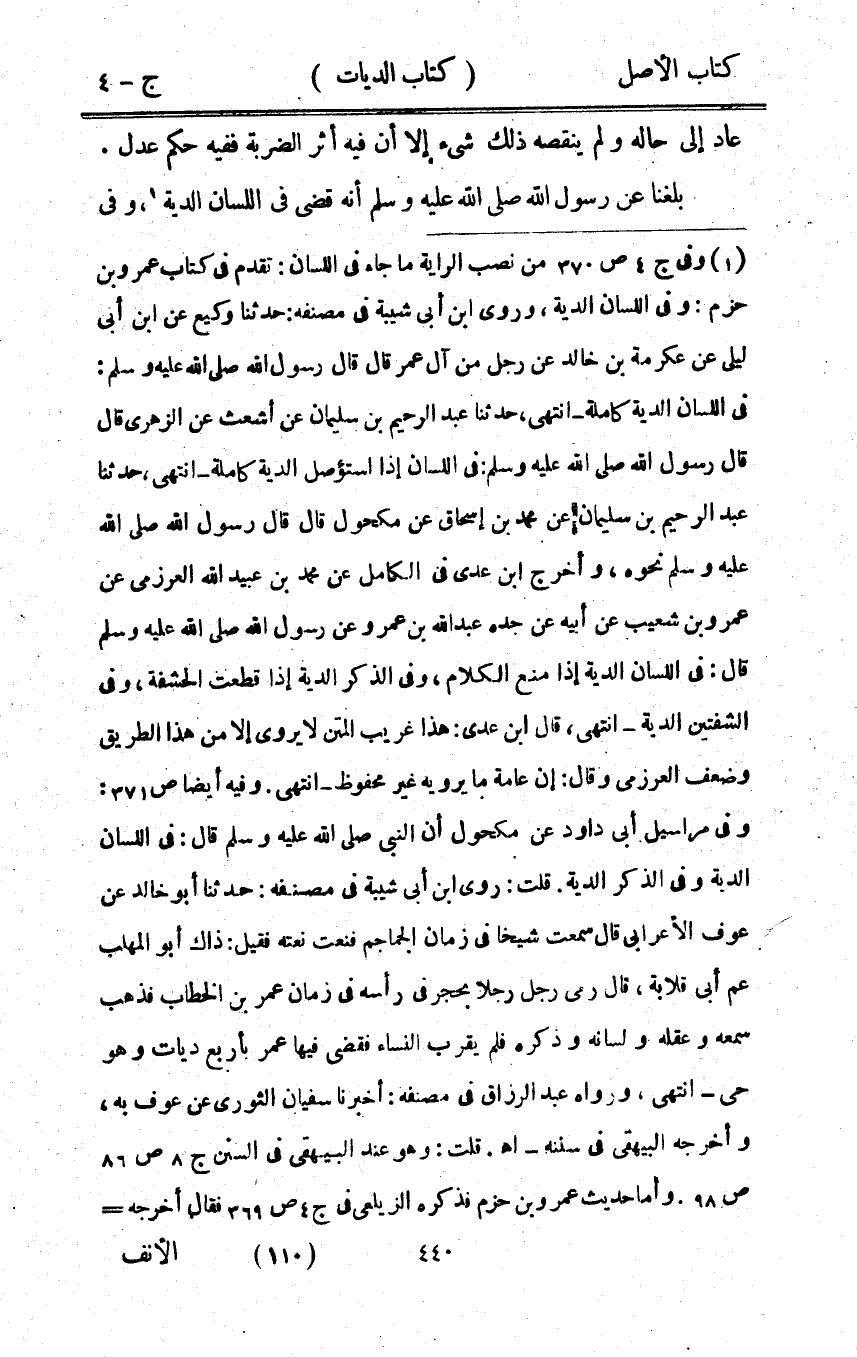 كتاب الأصل ( كتاب الديات ) ج – ٤
عاد إلى حاله و لم ينقصه ذلك شيء إلا أن فيه أثر الضربة ففيه حكم عدل .
بلغنا عن رسول الله صلى الله عليه و سلم أنه قضى فى اللسان الدية ١، و فى
(١) وفى ج ٤ ص ٣٧٠ من نصب الراية ما جاء فى اللسان : تقدم فى كتاب عمرو بن
حزم : و فى اللسان الدية ، و روى ابن أبى شيبة فى مصنفه : حدثنا وكيع عن ابن أبى
ليلى عن عكرمة بن خالد عن رجل من آل عمر قال قال رسول الله صلى الله عليه و سلم :
فى اللسان الدية كاملة – انتهى ، حدثنا عبد الرحيم بن سليمان عن أشعث عن الزهرى قال
قال رسول الله صلى الله عليه وسلم : فى اللسان إذا استؤصل الدية كاملة – انتهى ، حدثنا
عبد الرحيم بن سليمان عن محمد بن إسحاق عن مكحول قال قال رسول الله صلى الله
عليه و سلم نحوه ، و أخرج ابن عدى فى الكامل عن محمد بن عبيد الله العرزمى عن
عمرو بن شعيب عن أبيه عن جده عبد الله بن عمرو عن رسول الله صلى الله عليه و سلم
قال : فى اللسان الدية إذا منع الكلام ، وفى الذكر الدية إذا قطعت الحشفة ، و فى
الشفتين الدية – انتهى ، قال ابن عدى : هذا غريب المتن لا يروى إلا من هذا الطريق
وضعف العرزمى و قال : إن عامة ما يرويه غير محفوظ – انتهى . و فيه أيضا ص ٣٧١ :
و فى مراسيل أبى داود عن مكحول أن النبي صلى الله عليه و سلم قال : فى اللسان
الدية و فى الذكر الدية . قلت : روى ابن أبى شيبة فى مصنفه : حدثنا أبو خالد عن
عوف الأعرابى قال سمعت شيخا فى زمان الجماجم فنعت نعته فقيل : ذاك أبو المهلب
عم أبى قلابة ، قال رمى رجل رجلا بحجر فى رأسه فى زمان عمر بن الخطاب فذهب
سمعه و عقله و لسانه و ذكره فلم يقرب النساء فقضى فيها عمر بأربع ديات و هو
حى – انتهى ، و رواه عبد الرزاق فى مصنفه : أخبرنا سفيان الثورى عن عوف به ،
و أخرجه البيهقى فى سننه – اه . قلت : و هو عند البيهقى فى السنن ج ٨ ص ٨٦
ص ٩٨ . و أما حديث عمرو بن حزم فذكره الزيلعى فى ج ٤ ص ٣٦٩ فقال أخرجه =
٤٤٠ (١١٠) الأنف